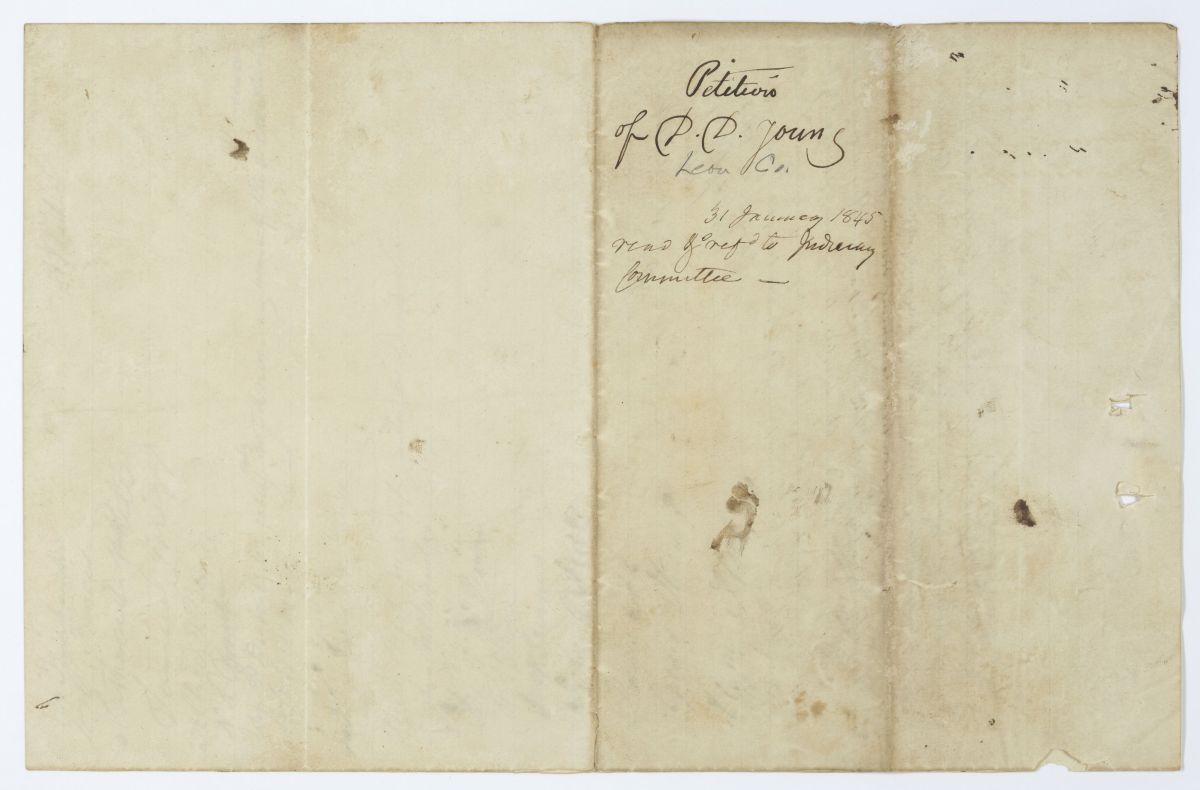 Petition
of D. D. Young
Leon Co.
31 January 1845
read & refd to Judiciary
Committee —